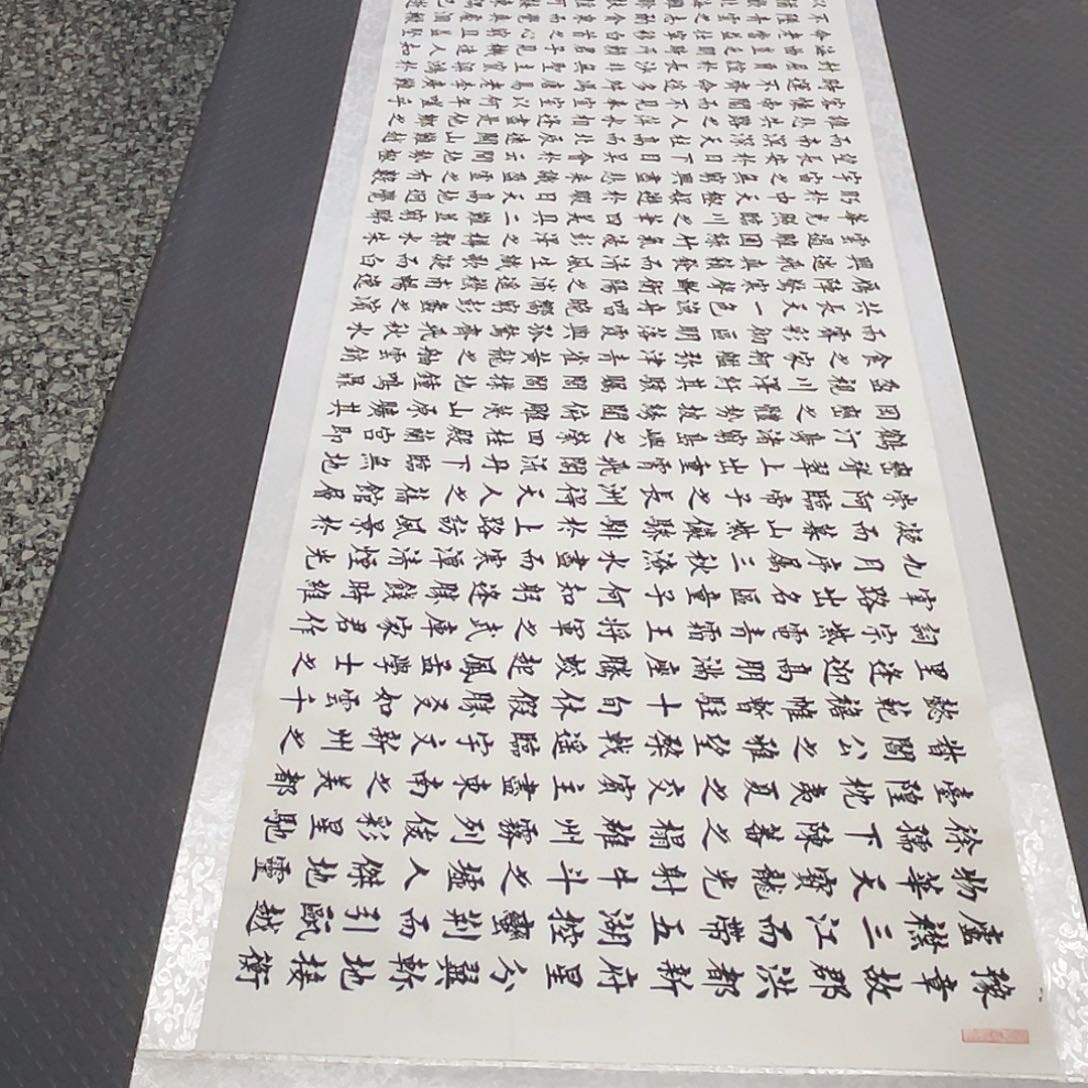 豫章故郡洪都新府星分翼軫地接衡
廬襟三江而帶五湖控蠻荊而引甌越
物華天寶龍光射牛斗之墟人傑地靈
徐孺下陳蕃之榻雄州霧列俊彩星馳
臺隍枕夷夏之交賓主盡東南之美都
督閻公之雅望棨戟遙臨宇文新州之
懿範襜帷暫駐十旬休假勝友如雲千
里逢迎高朋滿座騰蛟起鳳孟學士之
詞宗紫電青霜王將軍之武庫家君作
宰路出名區童子何知躬逢勝餞時維
九月序屬三秋潦水盡而寒潭清煙光
凝而暮山紫儼驂騑於上路訪風景於
崇阿臨帝子之長洲得天人之舊館層
巒聳翠上出重霄飛閣流丹下臨無地
鶴汀鳧渚窮島嶼之縈回桂殿蘭宮即
岡巒之體勢披繡闥俯雕甍山原曠其
盈視川澤紆其駭矚閭閻撲地鐘鳴鼎
食之家舸艦彌津青雀黃龍之舳雲銷
雨霽彩徹區明落霞與孤鶩齊飛秋水
共長天一色漁舟唱晚響窮彭蠡之濱
雁陣驚寒聲斷衡陽之浦遙襟甫暢逸
興遄飛爽籟發而清風生纖歌凝而白
雲遏睢園綠竹氣凌彭澤之樽鄴水朱
華光照臨川之筆四美具二難並窮睇
眄於中天極娛遊於暇日天高地迥覺
宇宙之無窮興盡悲來識盈虛之有數
望長安於日下目吳會於雲間地勢極
而南溟深天柱高而北辰遠關山難越
誰悲失路之人萍水相逢盡是他鄉之
客懷帝閽而不見奉宣室以何年嗟乎
時運不齊命途多舛馮唐易老李廣難
封屈賈誼於長沙非無聖主竄梁鴻於
海曲豈乏明時所賴君子見機達人知
命老當益壯寧移白首之心窮且益堅